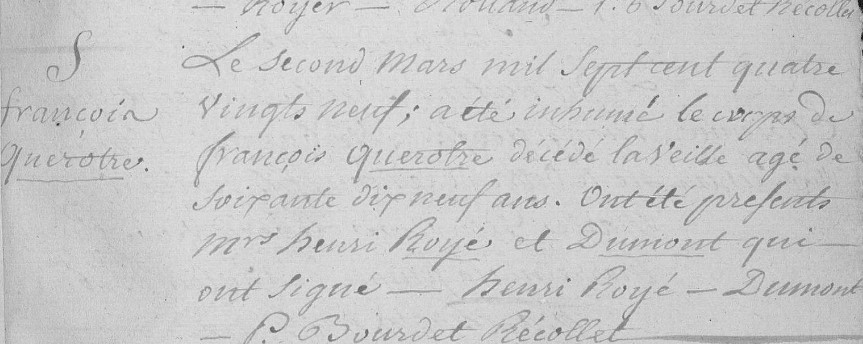 — Royer — . Rolland — P. B Bourdet Récollet
S
françois
Querotre.
Le second mars mil Sept cent quatre
vingts neuf; a été inhumé le corps de
françois Querotre décédé la veille agé de
soixante dix neuf ans. Ont été presents
Mrs henri Royé et Dumont qui —
ont signé — henri Royé — Dumont
— P. Bourdet Récollet